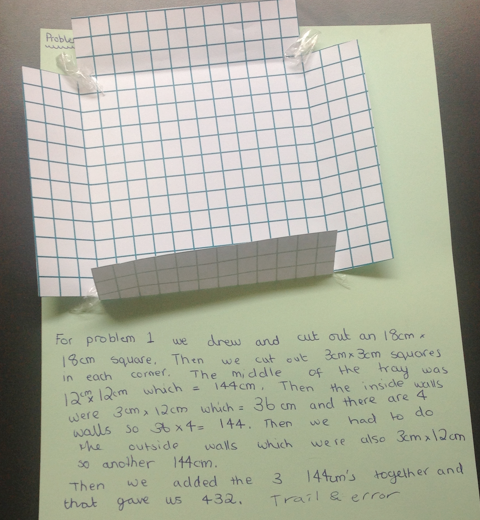 Problem
For problem 1 we drew and cut out an 18cm x
18cm square. Then we cut out 3cm x 3cm squares
in each corner. The middle of the tray was
12cm x 12cm which = 144cm. Then the inside walls
were 3cm x 12cm which = 36cm and there are 4
walls so 36 x 4 = 144. Then we had to do
the outside walls which were also 3cm x 12cm
so another 144cm.
Then we added the 3 144cm's together and
that gave us 432. Trail & error